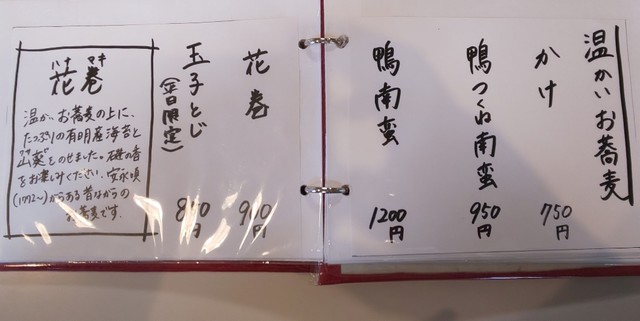 温かいお蕎麦
かけ
750円
鴨つくね南蛮
950円
鴨南蛮
1200円
花巻
900円
玉子とじ
(平日限定)
850円
ハナ マキ
花巻
温かいお蕎麦の上に、
たっぷりの有明産海苔と
山葵をのせました。磯の香
をお楽しみください。安永頃
(1772〜)からある昔ながらの
お蕎麦です。